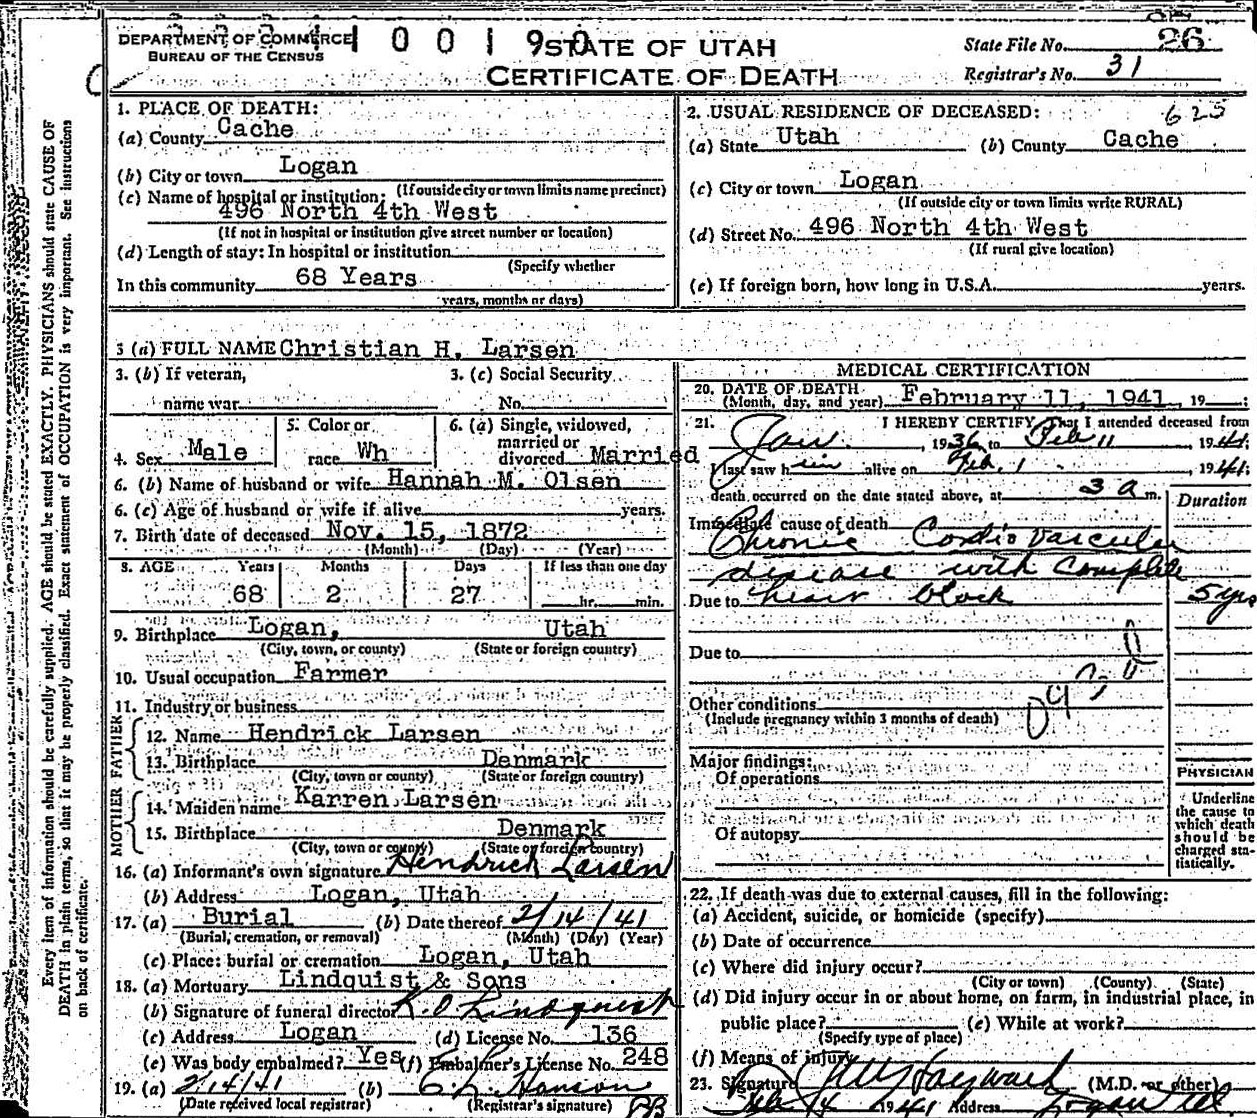 DEPARTMENT OF COMMERCE
BUREAU OF THE CENSUS
STATE OF UTAH
CERTIFICATE OF DEATH
State File No. 26
Registrar's No. 31
Every item of information should be carefully supplied. AGE should be stated EXACTLY. PHYSICIANS should state CAUSE OF
DEATH in plain terms, so that it may be properly classified. Exact statement of OCCUPATION is very important. See instructions
on back of certificate.
1. PLACE OF DEATH:
(a) County Cache
(b) City or town Logan
(If outside city or town limits name precinct)
(c) Name of hospital or institution:
496 North 4th West
(If not in hospital or institution give street number or location)
(d) Length of stay: In hospital or institution
(Specify whether
In this community 68 Years
years, months or days)
2. USUAL RESIDENCE OF DECEASED: 625
(a) State Utah (b) County Cache
(c) City or town Logan
(If outside city or town limits write RURAL)
(d) Street No. 496 North 4th West
(If rural give location)
(e) If foreign born, how long in U.S.A. years.
3 (a) FULL NAME Christian H. Larsen
3. (b) If veteran, 3. (c) Social Security
name war No.
4. Sex Male 5. Color or race Wh 6. (a) Single, widowed, married or divorced Married
6. (b) Name of husband or wife Hannah M. Olsen
6. (c) Age of husband or wife if alive years.
7. Birth date of deceased Nov. 15, 1872
(Month) (Day) (Year)
8. AGE Years Months Days If less than one day
68 2 27 hr. min.
9. Birthplace Logan, Utah
(City, town, or county) (State or foreign country)
10. Usual occupation Farmer
11. Industry or business
FATHER
12. Name Hendrick Larsen
13. Birthplace Denmark
(City, town or county) (State or foreign country)
MOTHER
14. Maiden name Karren Larsen
15. Birthplace Denmark
(City, town or county) (State or foreign country)
16. (a) Informant's own signature Hendrick Larsen
(b) Address Logan, Utah
17. (a) Burial (b) Date thereof 2/14/41
(Burial, cremation, or removal) (Month) (Day) (Year)
(c) Place: burial or cremation Logan, Utah
18. (a) Mortuary Lindquist & Sons
(b) Signature of funeral director K.O. Lindquist
(c) Address Logan (d) License No. 136
(e) Was body embalmed? Yes (f) Embalmer's License No. 248
19. (a) 2/14/41 (b) Hanson
(Date received local registrar) (Registrar's signature)
MEDICAL CERTIFICATION
20. DATE OF DEATH
(Month, day, and year) February 11, 1941, 19 ;
21. I HEREBY CERTIFY That I attended deceased from
Jan. 1936 to Feb 11, 1941
I last saw him alive on Feb. 1, 1941;
death occurred on the date stated above, at 3 a m.
Duration
Immediate cause of death
Chronic Cardio Vascular
disease with complete
Due to heart block 5 yrs
Due to
Other conditions
(Include pregnancy within 3 months of death)
Major findings:
Of operations
Of autopsy
PHYSICIAN
Underline
the cause to
which death
should be
charged sta-
tistically.
22. If death was due to external causes, fill in the following:
(a) Accident, suicide, or homicide (specify)
(b) Date of occurrence
(c) Where did injury occur?
(City or town) (County) (State)
(d) Did injury occur in or about home, on farm, in industrial place, in
public place? (e) While at work?
(Specify type of place)
(f) Means of injury
23. Signature Hayward (M.D. or other)
Feb 14 1941 Address Logan Ut